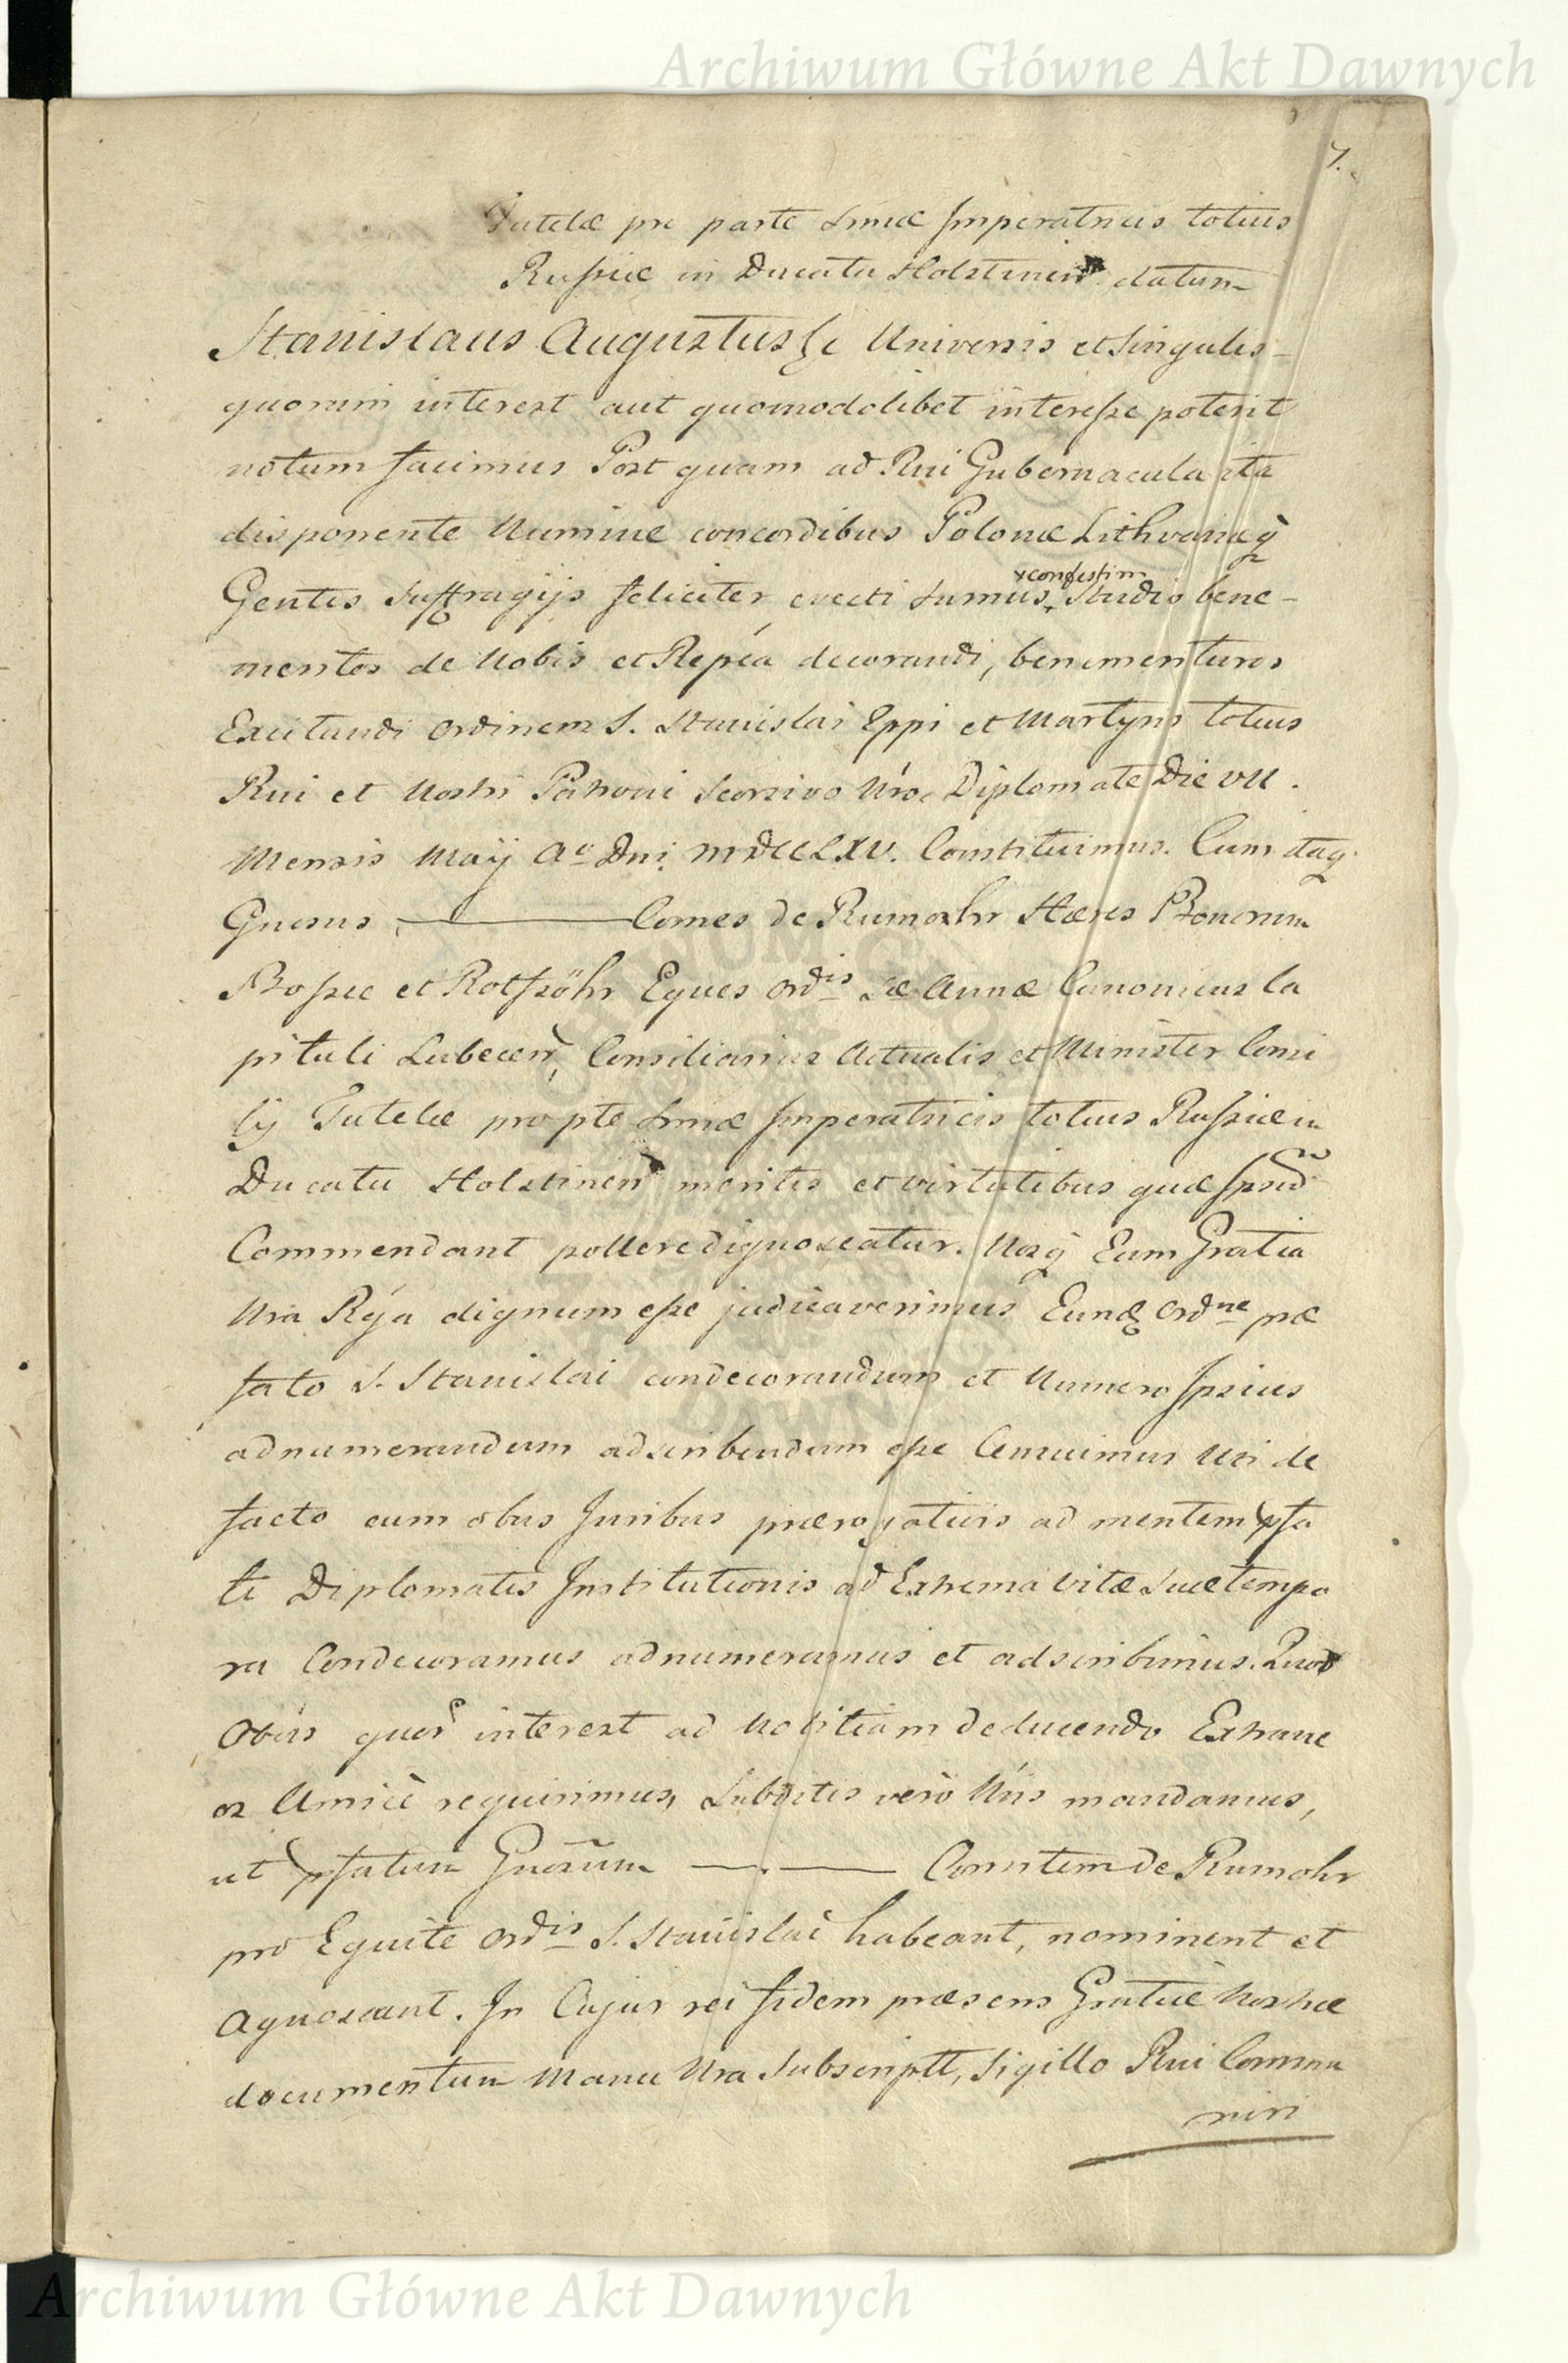 Archiwum Główne Akt Dawnych
7.
Tutelæ pro parte Smæ Imperatricis totius
Russiæ in Ducatu Holstinen datum
Stanislaus Augustus &c Universis et Singulis
quorum interest aut quomodolibet interesse poterit
notum facimus Post quam ad Rni Gubernacula ita
disponente Numine concordibus Polonæ Lithvanæq
Gentis Suffragijs feliciter evecti Sumus, Studio bene-
x confestim
meritos de Nobis et Repca decorandi, benemerituros
Excitandi Ordinem S. Stanislai Eppi et Martyris totius
Rni et Nostri Patroni Seorsivo Nro Diplomate Die VII.
Mensis Maij Ao Dni MDCCLXV. Constituimus. Cum itaq
Gnosus ——— Comes de Rumohr Hæres Bonorum
Bossee et Rotsöhr Eques Ordis Sæ Annæ Canonicus Ca
pituli Lubecen, Consiliarius Actualis et Minister Consi
lij Tutelæ pro pte Smæ Imperatricis totius Russiæ in
Ducatu Holstinen meritis et virtutibus quæ Ipsum
Commendant pollere dignoscatur. Nosq Eum Gratia
Nra Rya dignum esse judicaverimus Eundq Ordne præ
fato S. Stanislai condecorandum et Numero Ipsius
adnumerandum adscribendum esse Censuimus Uti de
facto cum obus Juribus prærogativis ad mentem pfa
ti Diplomatis Institutionis ad Extrema Vitæ Suæ tempo
ra Condecoramus adnumeramus et adscribimus. Quod
Obus quor interest ad Notitiam deducendo Extrane
os Amicè requirimus, Subditis verò Nris mandamus,
ut pfatum Gnosum ——— Comitem de Rumohr
pro Equite Ordis S. Stanislai habeant, nominent et
Agnoscant. In Cujus rei fidem præsens Gratiæ Nostræ
documentum Manu Nra Subscriptt, Sigillo Rni Commu
niri
Archiwum Główne Akt Dawnych